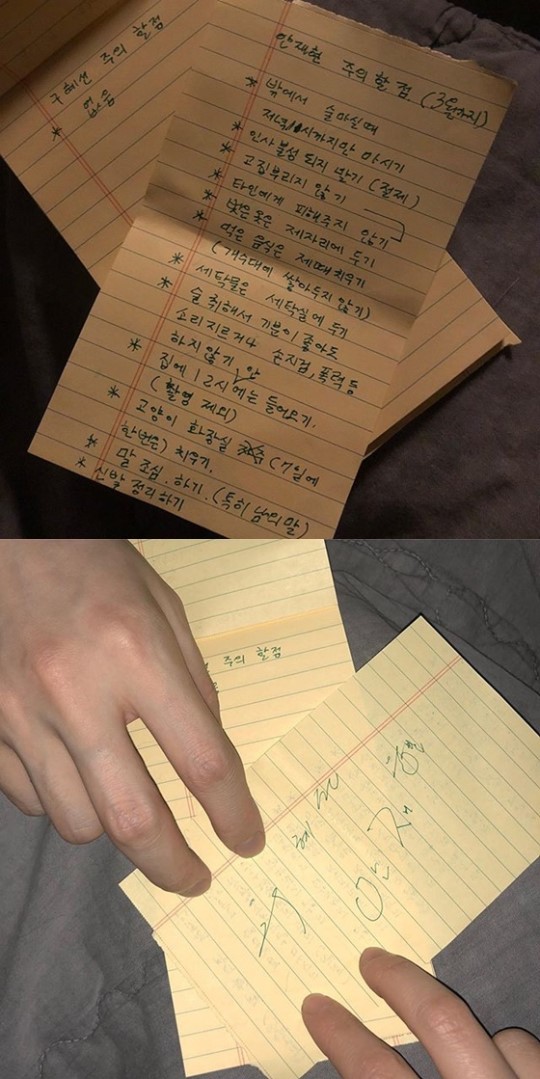 구혜선 주의 할점
* 없음
안재현 주의 할 점. (3월까지)
* 밖에서 술마실때
저녁 시까지만 마시기
* 인사불성 되지 말기 (절제)
* 고집부리지 않기
* 타인에게 피해주지 않기
* 벗은 옷은 제자리에 두기
* 먹은 음식은 제때 치우기
(개수대에 쌓아두지 않기)
* 세탁물은 세탁실에 두기
* 술 취해서 기분이 좋아도
소리지르거나 손지검, 폭력 등
하지 않기 안
* 집에 12시에는 들어오기.
(촬영 제외)
* 고양이 화장실 (7일에
한번은) 치우기.
* 말 조심. 하기. (특히 남의 말)
* 신발 정리하기
주의 할점
구혜선
안재현